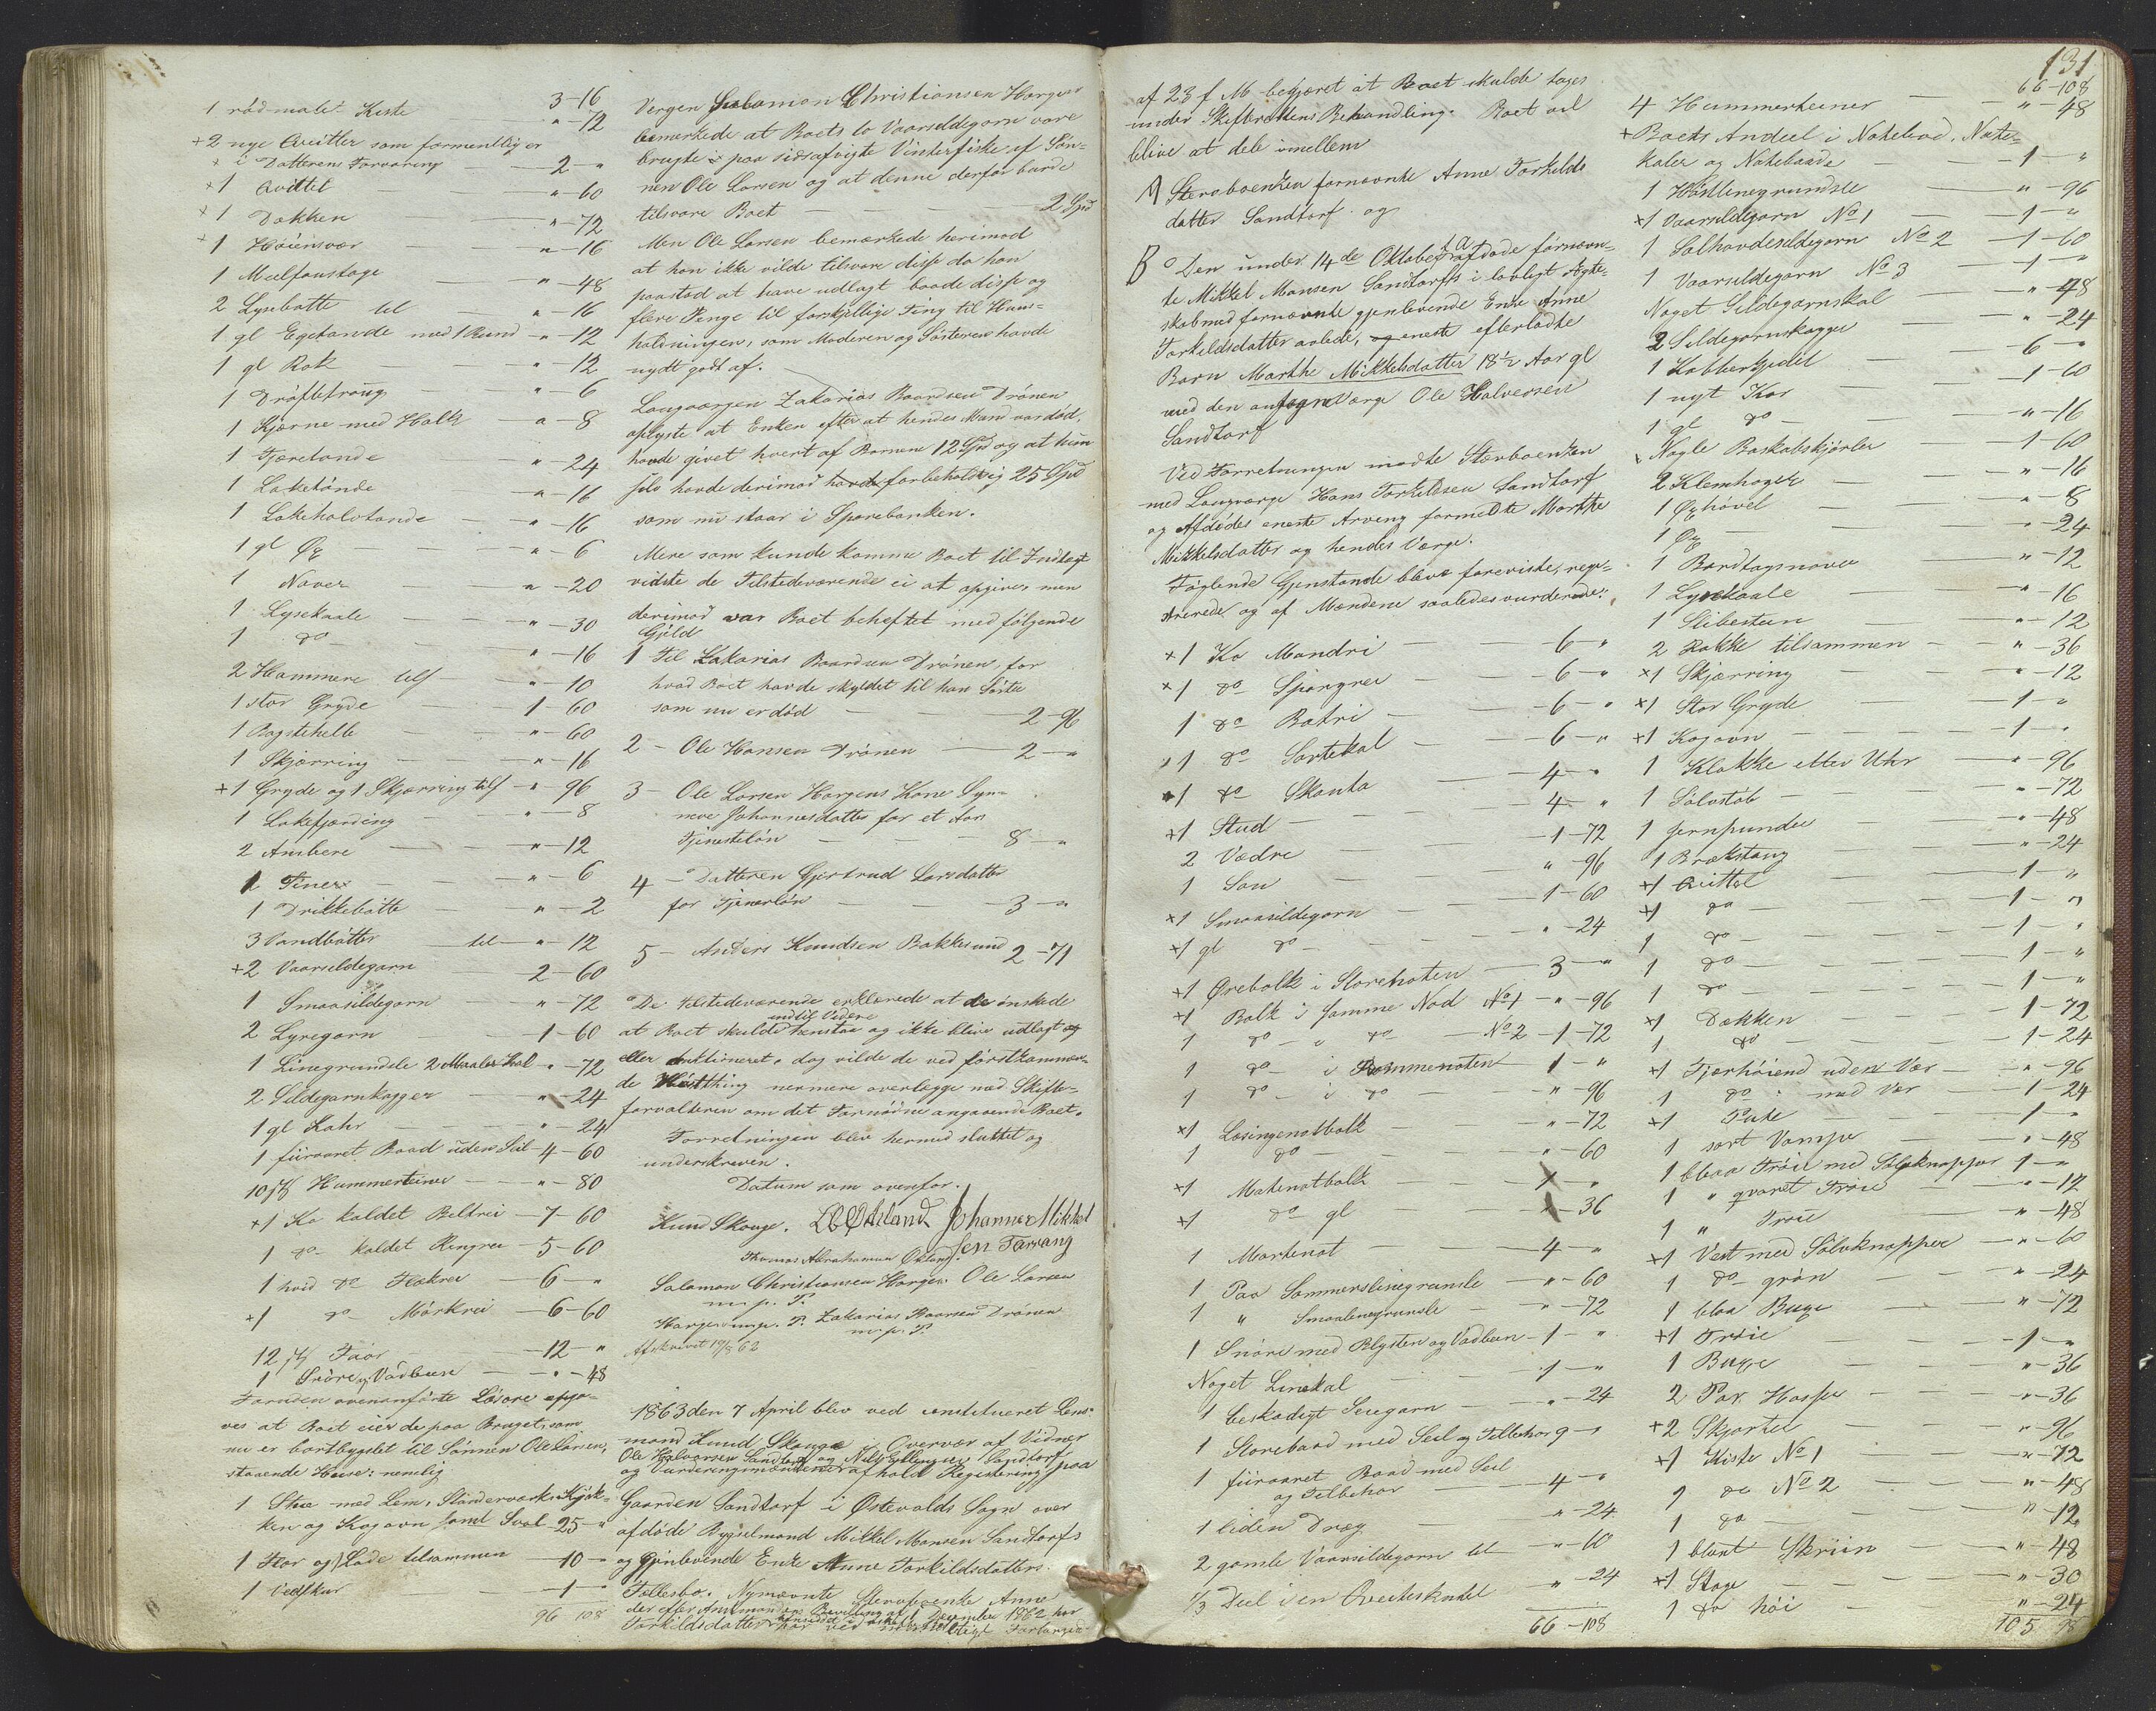 3-16
1 rød malet Kiste " - 72
+2 nye Qvitler som formentlig er
+ i Datterens Forvaring 2 - "
+1 Qvittel " - 60
+1 Dækken " - 72
+1 Høiensvær " - 16
1 Meelfoustage " - 48
2 Lysebøtte til " - 16
1 gl Egetønde med 1 Bund - " - 12
1 gl Rok " - 12
1 Drøftetroug " - 6
1 Kjærne med Holk " - 8
1 Tjæretønde " - 24
1 Laketønde " - 16
1 Lakehalvtønde " - 16
1 gl Øx " - 6
1 Naver " - 20
1 Lysekaale " - 30
1 do " - 16
2 Hammere tils " - 10
1 stor Gryde 1 - 60
1 Bagstehelle " - 60
1 Skjørring " - 16
+1 Gryde og 1 Skjørring tils - " 96
1 Lakefjerding " - 8
2 Ambere " - 12
1 Tiner " - 6
1 Drikkebøtte " - 2
3 Vandbøtter til " - 12
+2 Vaarsildegarn 2 - 60
1 Smaasildegarn " - 72
2 Lyregarn 1 - 60
1 Linegrundsle 2 Maaler Kal - " - 72
2 Sildegarnkagger " - 24
1 gl Kahr " - 24
1 fiirroret Baad uden Seil - 4 - 60
10 st Hummerteiner " - 80
+1 Ko kaldet Beltrei - 7 - 60
1 do kaldet Ringrei - 5 - 60
1 hvid do Flekrei - 6 - "
+1 do Mørkrei - 6 - 60
12 st Faar - 12 - "
1 Snøre og Vadbeen " - 48
Foruden ovenanførte Løsøre opga-
ves at Boet eier de paa Bruget, som
nu er bortbygslet til Sønnen Ole Larsen,
staaende Huse: nemlig
1 Stue med Lem, Stonderværks Kjøk-
ken og Kogovn samt Sval - 25 - "
1 Flor og 1 Lade tilsammen 10 - "
1 Vedskur 1 - "
96 108
Vergen Salomon Christiansen Horgen
bemærkede at Boets to Vaarsildegarn vare
brugte paa sidsafvigte Vinterfiske af Søn-
nen Ole Larsen og at denne derfor burde
tilsvare Boet 2 Spd
Men Ole Larsen bemærkede herimod
at han ikke vilde tilsvare disse da han
paastod at have udlagt baade disse og
flere Penge til forskjellige Ting til Huus-
holdningen, som Moderen og Søsteren havde
nydt godt af.
Laugværgen Zakarias Baardsen Drønen
oplyste at Enken efter at hendes Mand var død
havde givet hvert af Børnene 12 Spd og at hun
selv havde derimod forbeholdt sig 25 Spd
som nu staar i Sparebanken.
Mere som kunde komme Boet til Indtægt
vidste de Tilstedeværende ei at opgive, men
derimod var Boet beheftet med følgende
Gjeld
1 Til Zakarias Baardsen Drønen, for
hvad Boet havde skyldet til han Søster
som nu er død 2 - 96
2 - Ole Hansen Drønen 2 - "
3 - Ole Larsen Horgens Kone Syn-
neve Johannesdatter for et Aars
Tjenesteløn 8 - "
4 - Datteren Gjertrud Larsdatter
for Tjenerløn 3 - "
5 - Anders Knudsen Bakkesund 2 - 71
De Tilstedeværende erklærede at de ønskede
indtil Videre
at Boet skulde henstaa og ikke blive udlagt
eller Auktioneret, dog vilde de ved førstkommen-
de Høstthing nermere overlegge med Skifte-
forvalteren om det Fornødne angaaende Boet.
Forretningen blev hermed sluttet og
underskreven.
Datum som ovenfor.
Knud Skouge. Johannes Mikkel
sen Tarvang
Thomas Abrahamsen
Salomon Christiansen Horgen. Ole Larsen
m. p. P.
Horgen m. p. P. Zakarias Baarsen Drønen
m. p. P.
Afskrevet 19/8 62
1863 den 7 April blev ved constitueret Lens-
mand Knud Skouge i Overvær af Vidner
Ole Halvorsen Sandtorf og Nils Sandtorf
og Vurderingsmændene afholdt Registering paa
Gaarden Sandtorf i Østevolds Sogn over
afdøde Bygselmand Mikkel Monsen Sandtorfs
og gjenlevende Enke Anne Torkildsdatters
Fællesbo. Nymævnte Sterveboenke Anne
Torkildsdatter
af 23 f M begjæret at Boet skulde tages
under Skifterettens Behandling. Boet vil
blive at dele imellem
A Stervboenken fornævnte Anne Torkilds-
datter Sandtorf og
B Den under 14de Oktober f. A. afdøde fornævn-
te Mikkel Monsen Sandtorfs i lovligt Ægte-
skab med fornævnte gjenlevende Enke Anne
Torkildsdatter avlede, eneste efterladte
Barn Marthe Mikkelsdatter 18 1/2 Aar gl
med den antagne Værge Ole Halvorsen
Sandtorf
Ved Forretningen mødte Stervboenken
med Laugværge Hans Torkildsen Sandtorf
og Afdødes eneste Arving formeldte Marthe
Mikkelsdatter og hendes Værge.
Følgende Gjenstande bleve foreviste, regi-
strerede og af Mændene saaledes vurderede:
+1 Ko Mandri 6 - "
+1 do Sporgrei 6 - "
1 do Botri 6 - "
+1 do Sortekol 6 - "
+1 do Skanta 4 - "
+1 Stud 4 - "
2 Vædre 1 - 72
1 Sou " - 96
+1 Smaasildegarn 1 - 60
+1 gl do " - 24
+1 Ørebolk i Storenoten 3 - "
+1 Bolk i samme Nod No 1 - " - 96
1 do - " do No 2 - 1 - 72
1 do i Rommenoten 1 - "
1 do - i do " - 96
+1 Løsingenotbolk " - 72
1 do " - 60
+1 Makenotbolk 1 - "
+1 do gl " - 36
1 Mortenot 4 - "
1 Paa Sommerslinegrunsle - " - 60
1 " Smaalinegrunsle " - 72
1 Snøre med Blysten og Vadbeen - 1 - "
Noget Linekal 1 - "
1 beskadigt Seiegarn " - 24
1 Storebaad med Seil og Tilbehør 9 - "
1 fiirroret Baad med Seil
og Tilbehør 4 - "
1 liden Dræg " - 24
2 gamle Vaarsildegarn til - " - 60
1/3 Deel i en Qveiteskudel " - 24
66 - 108
131
66 - 108
4 Hummerteiner " - 48
+Boets Andeel i Notelod, Note-
kaler og Notebaade 1 - "
1 Høstlinegrundsle " - 96
+1 Vaarsildegarn No 1 1 - "
1 Solhovdesildegarn No 2 - 1 - 60
1 Vaarsildegarn No 3 1 - "
Noget Sildegarnskal " - 48
2 Sildegarnskagger " - 24
1 Kobberkjedel 6 - "
1 nyt Kar 1 - 60
1 gl do " - 16
Nogle Boskabskjørler 1 - 60
2 Klemhager " - 16
1 Øxhøvel " - 8
1 Øx " - 24
1 Bordtagsnaver " - 12
1 Lysekaale " - 16
1 Slibesteen " - 12
2 Rokke tilsammen " - 36
+1 Skjørring " - 12
+1 Stor Gryde 1 - "
+1 Kogovn 1 - "
1 Klokke eller Uhr " - 96
1 Sølvstøb " - 72
1 Jernpunder " - 48
1 Brækstang " - 24
+1 Qvittel 1 - "
+1 do 1 - "
1 do 1 - "
1 do 1 - "
1 do 1 - "
+1 Dækken 1 - 72
1 do 1 - 24
+1 Fjærhøiend uden Vær " - 96
1 do med Vær 1 - 24
+1 Pute 1 - "
1 sort Vampe " - 48
1 blaa Trøie med Sølvknapper 1 - "
1 " Trøie " - 12
1 " Trøie " - 48
+1 Vest med Sølvknapper - " - 60
1 do grøn " - 24
1 blaa Buxe " - 72
+1 Trøie 1 - "
1 Buxe " - 36
2 Par Hosser " - 36
+2 Skjorter " - 96
+1 Kiste No 1 " - 72
1 do No 2 " - 48
1 do " - 12
1 blaat Skriin " - 48
+1 Stage " - 30
1 do høi " - 24
105 98